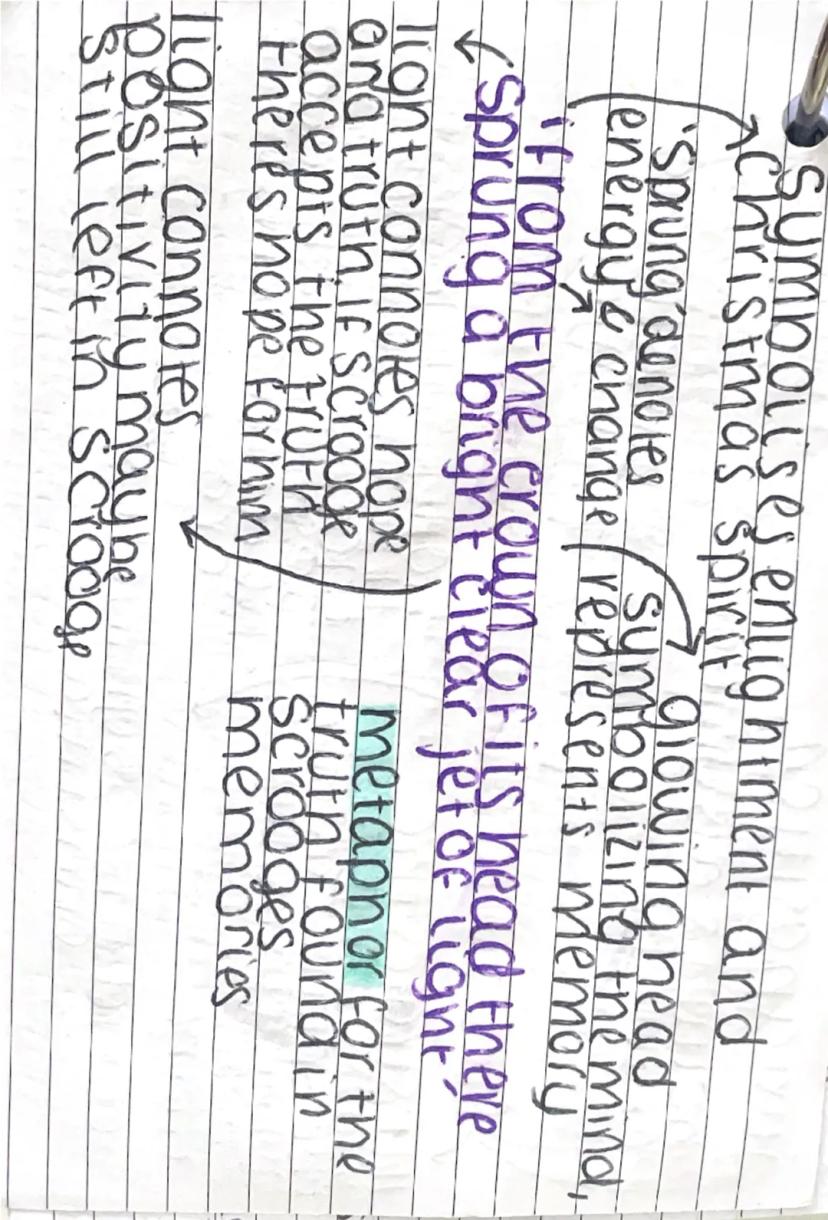 Symbolises enlightment and
christmas spirit
'sprung' connotes
energy & change
glowing head
symbolizing the mind,
represents memory
'from the crown of its head there
sprung a bright clear jet of light'
light connotes hope
and truth. If scrooge
accepts the truth
theres hope for him
metaphor for the
truth found in
scrooges
memories
light connotes
positivity maybe
still left in scrooge